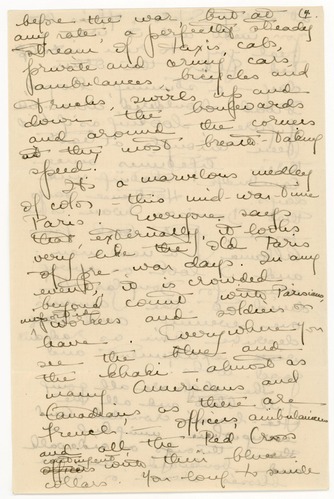 before the war, but at (4.
any rate, a perfectly steady
stream of taxis, cabs,
private and army cars
ambulances, bicycles and
trucks, swirls up and
down the boulevards
and around the corners
at the most breath-taking
speed.
It's a marvelous medley
of color, this mid-war-time
Paris. Everyone says
that, externally, it looks
very like the old Paris
of pre-war days. In any
event, it is crowded
beyond count with Parisians
workers and soldiers on
leave. Everywhere you
see the blue and
the khaki - almost as
many Americans and
Canadians as there are
French officers, ambulanciers
and all the Red Cross
contingent with their blue
collars. You long to smile